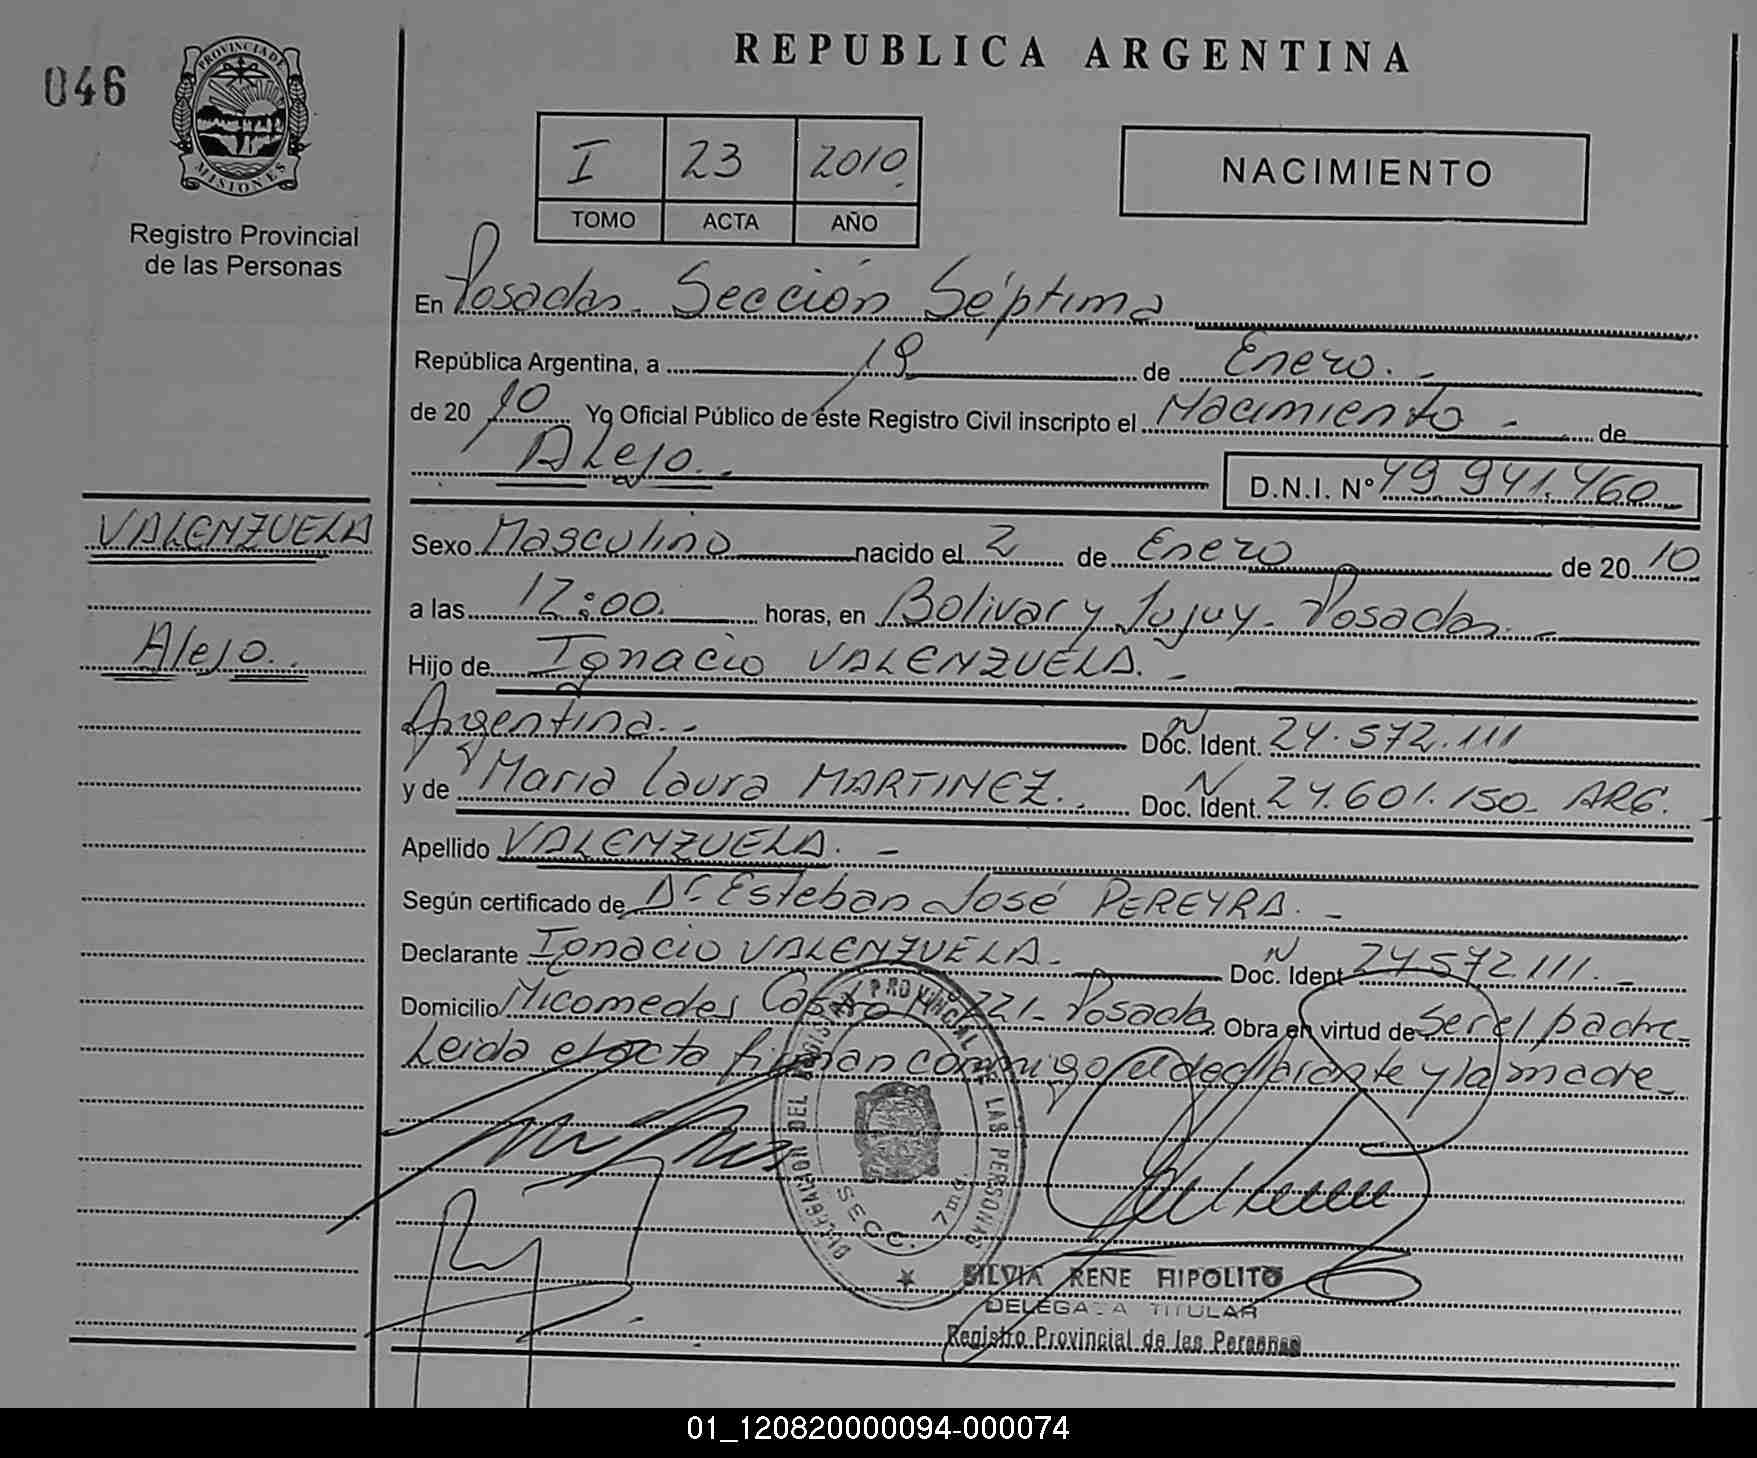 REPUBLICA ARGENTINA
046
PROVINCIA DE
MISIONES
Registro Provincial
de las Personas
I 23 2010
TOMO ACTA AÑO
NACIMIENTO
En Posadas. Sección Séptima
República Argentina, a 19 de Enero.-
de 20 10 Yo Oficial Público de éste Registro Civil inscripto el Nacimiento - de
Alejo.- D.N.I. N° 49.941.460
VALENZUELA
Alejo.
Sexo Masculino nacido el 2 de Enero de 20 10
a las 12:00. horas, en Bolivar y Jujuy - Posadas.-
Hijo de Ignacio VALENZUELA.-
Argentina.- Doc. Ident. N 24.572.111
y de Maria Laura MARTINEZ.- Doc. Ident. N 24.601.150- ARG.
Apellido VALENZUELA.-
Según certificado de Dr Esteban José PEREYRA.-
Declarante Ignacio VALENZUELA.- Doc. Ident N 24572111.-
Domicilio Nicomedes Castro Posadas. Obra en virtud de ser el padre-
Leida el acta firman conmigo el declarante y la madre-
DELEGACION DEL REGISTRO PROVINCIAL DE LAS PERSONAS
SECC. 7ma.
SILVIA RENE HIPOLITO
DELEGADA TITULAR
Registro Provincial de las Personas
01_120820000094-000074